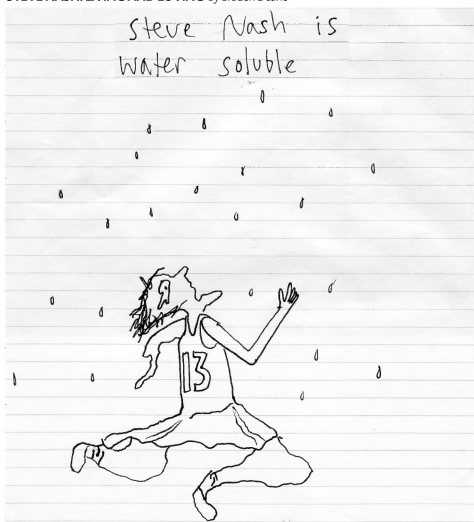 steve Nash is
water soluble
13